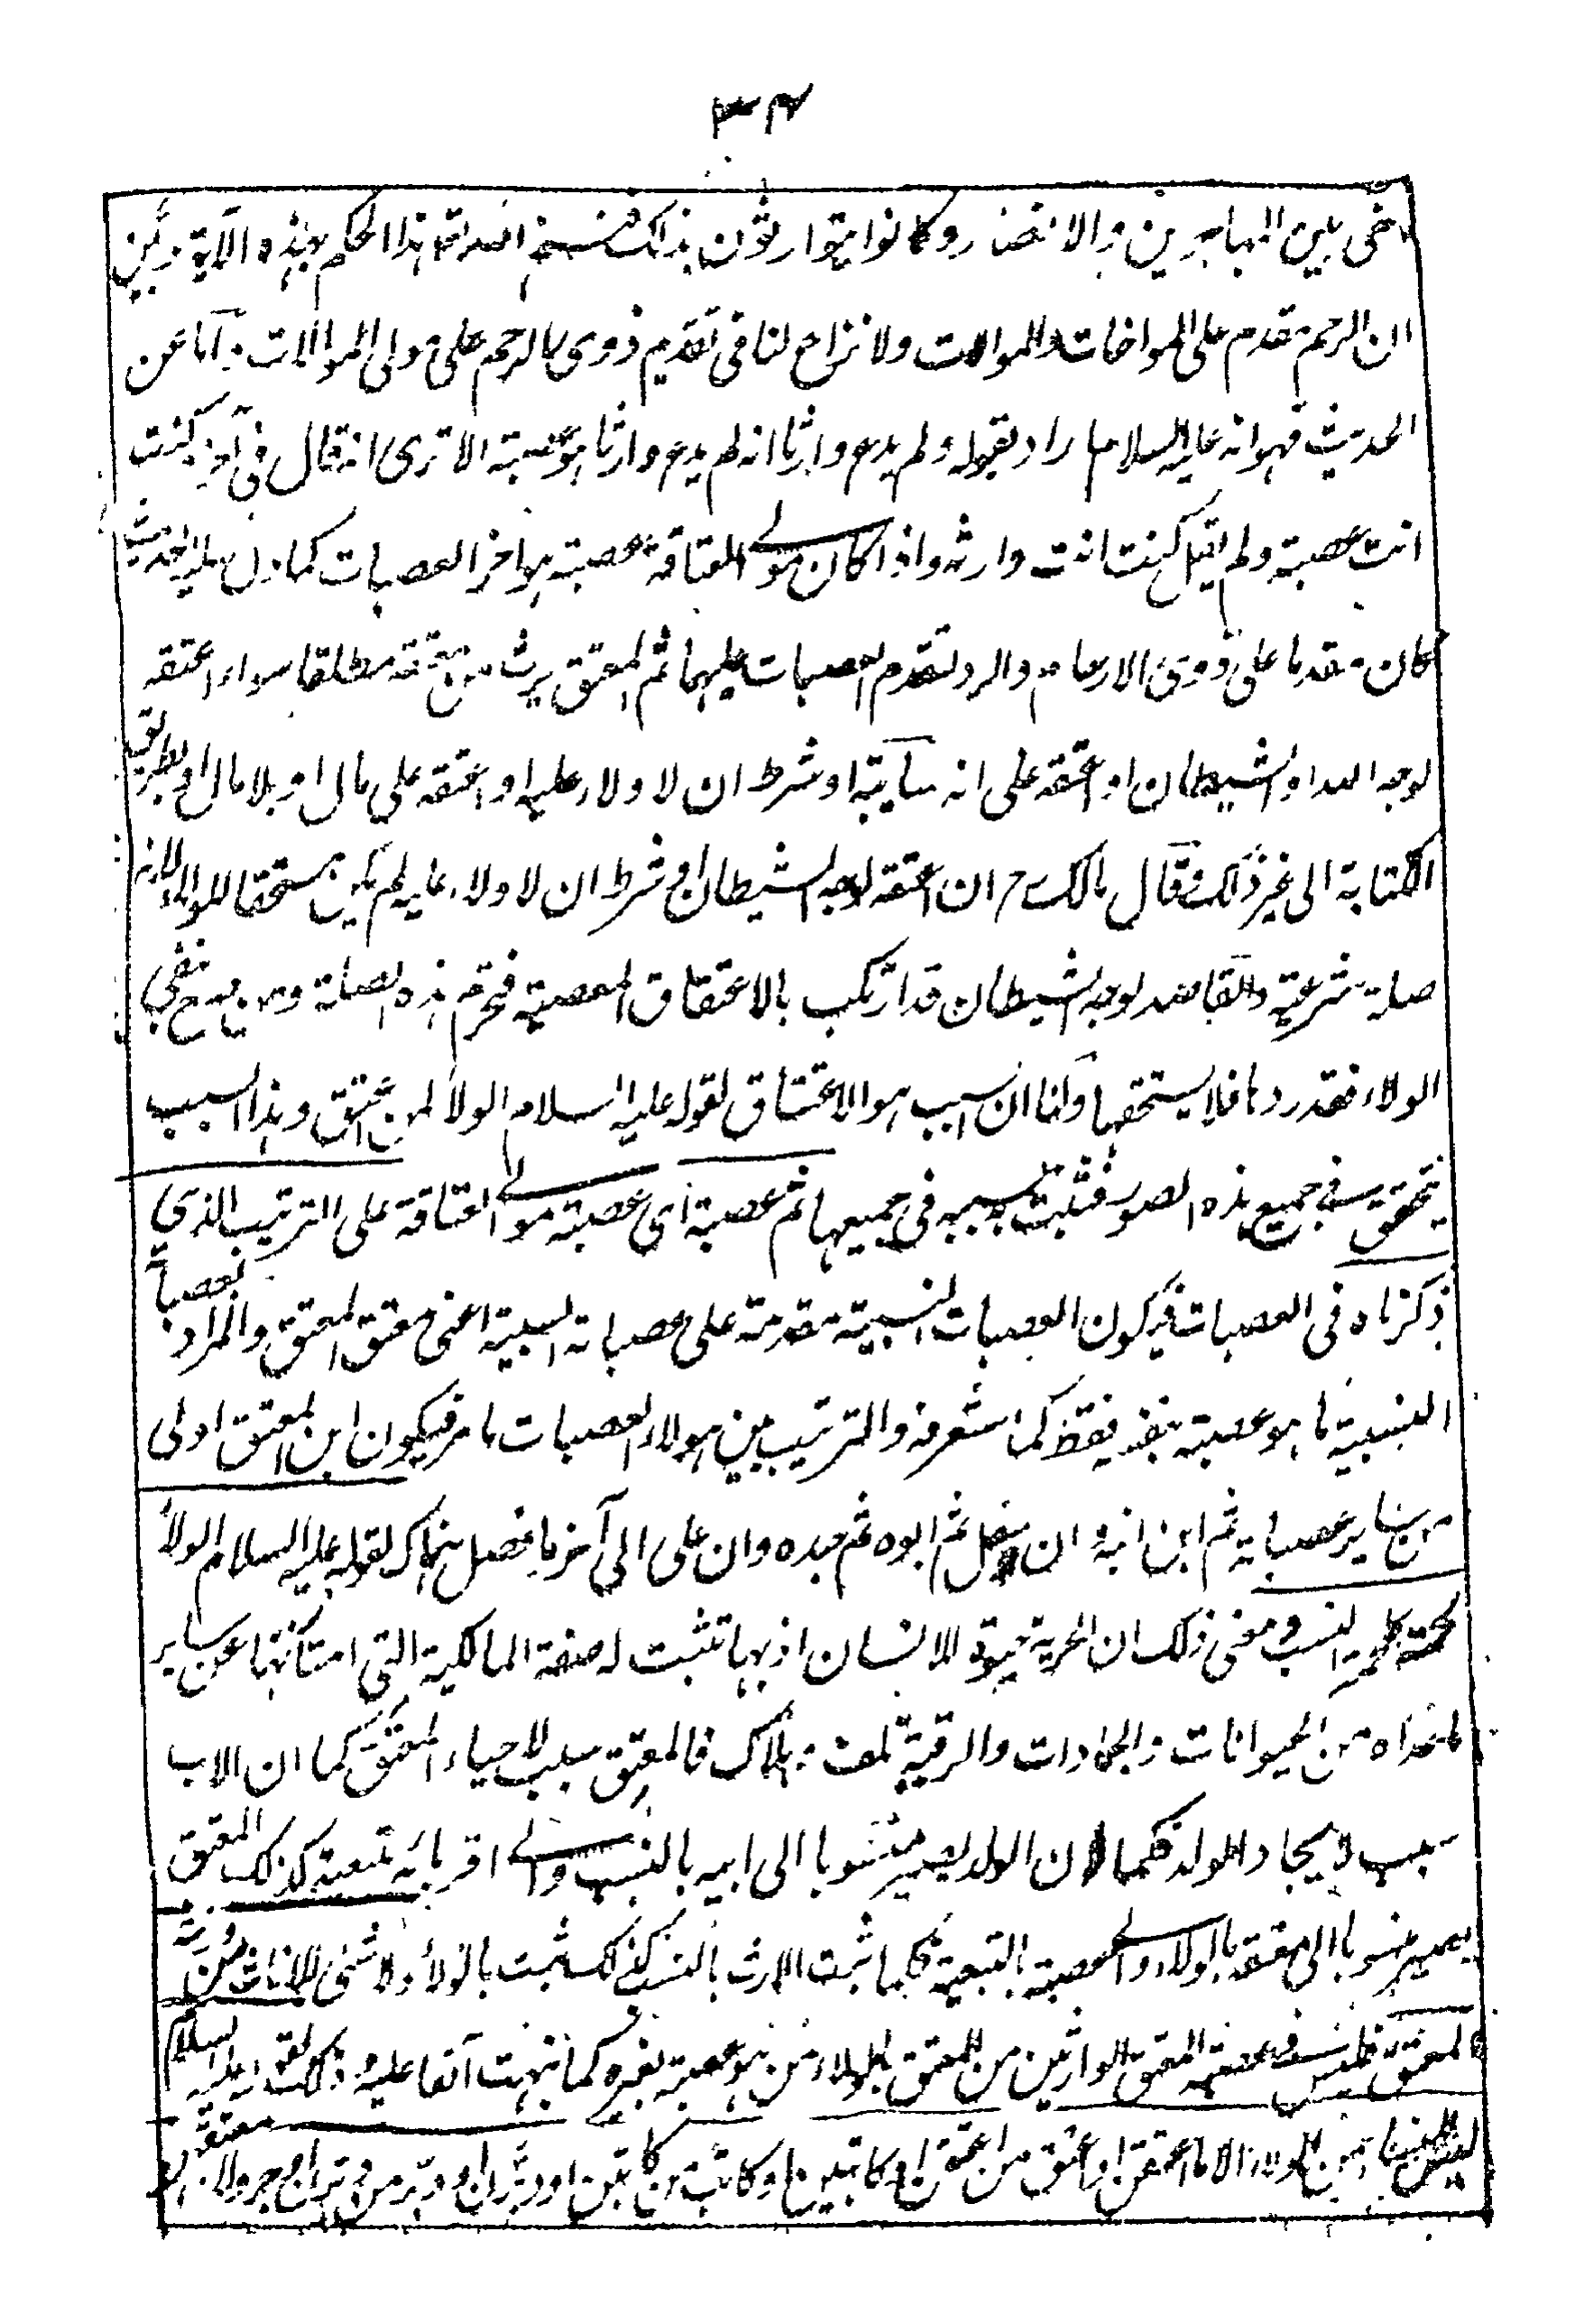 ٣٤
اخى بين المهاجرين والانصار وكانوا يتوارثون بذلك فنسخ الله تعالى هذا الحكم بهذه الآية وبين
ان الرحم مقدم على المواخات والموالات ولا نزاع لنا فى تقديم ذوى الرحم على مولى الموالات واما عن
الحديث فهو انه عليه السلام اراد بقوله ولم يدع وارثا انه لم يدع وارثا هو عصبة الا ترى انه قال فى آخره كنت
انت عصبته ولم يقل كنت انت وارثه واذا كان مولى العتاقة عصبة هو اخر العصبات كما دل عليه الحديث
كان مقدما على ذوى الارحام والرد لتقدم العصبات عليهما ثم المعتق يرث من معتقه مطلقا سواء اعتقه
لوجه الله او للشيطان او اعتقه على انه سايبة او شرط ان لا ولاء عليه او اعتقه على مال او بلا مال او بطريق
الكتابة الى غير ذلك وقال مالك رح ان اعتقه لوجه الشيطان او شرط ان لا ولاء عليه لم يكن مستحقا للولاء لانه
صلة شرعية والقاصد لوجه الشيطان قد ارتكب بالاعتاق المعصية فحرم هذه الصلة ومن صرح بنفى
الولاء فقد ردها فلا يستحقها ولنا ان السبب هو الاعتاق لقوله عليه السلام الولاء لمن اعتق وهذا السبب
يتحقق فى جميع هذه الصور فثبت المسبب فى جميعها ثم عصبته اى عصبة مولى العتاقة على الترتيب الذى
ذكرناه فى العصبات فيكون العصبات النسبية مقدمة على عصباته السببية اعنى معتق المعتق والمراد بعصباته
النسبية ما هو عصبة بنفسه فقط كما ستعرفه والترتيب بين هولاء العصبات ما مر فيكون ابن المعتق اولى
من ساير عصباته ثم ابن ابنه وان سفل ثم ابوه ثم جده وان على الى آخر ما فصل هناك لقوله عليه السلام الولاء
لحمة كلحمة النسب ومعنى ذلك ان الحرية حيوة للانسان اذ بها تثبت له صفة المالكية التى امتاز بها عن ساير
ما عداه من الحيوانات والجمادات والرقية تلف وهلاك فالمعتق سبب لاحياء المعتق كما ان الاب
سبب لايجاد الولد فكما ان الولد يصير منسوبا الى ابيه بالنسب والى اقربائه بتبعية كذلك المعتق
يصير منسوبا الى معتقه بالولاء والى عصبته بالتبعية فكما ثبت الارث بالنسب كذلك ثبت بالولاء ولا شئ للاناث من ورثة
المعتق فليس فى عصبة المعتق الوارثين من المعتق بالولاء من هو عصبة بغيره كما نبهت آنفا عليه وذلك لقوله عليه السلام
ليس للنساء من الولاء الا ما اعتقن او اعتق من اعتقن او كاتبن او كاتب من كاتبن او دبرن او دبر من دبرن او جر ولاء معتقهن